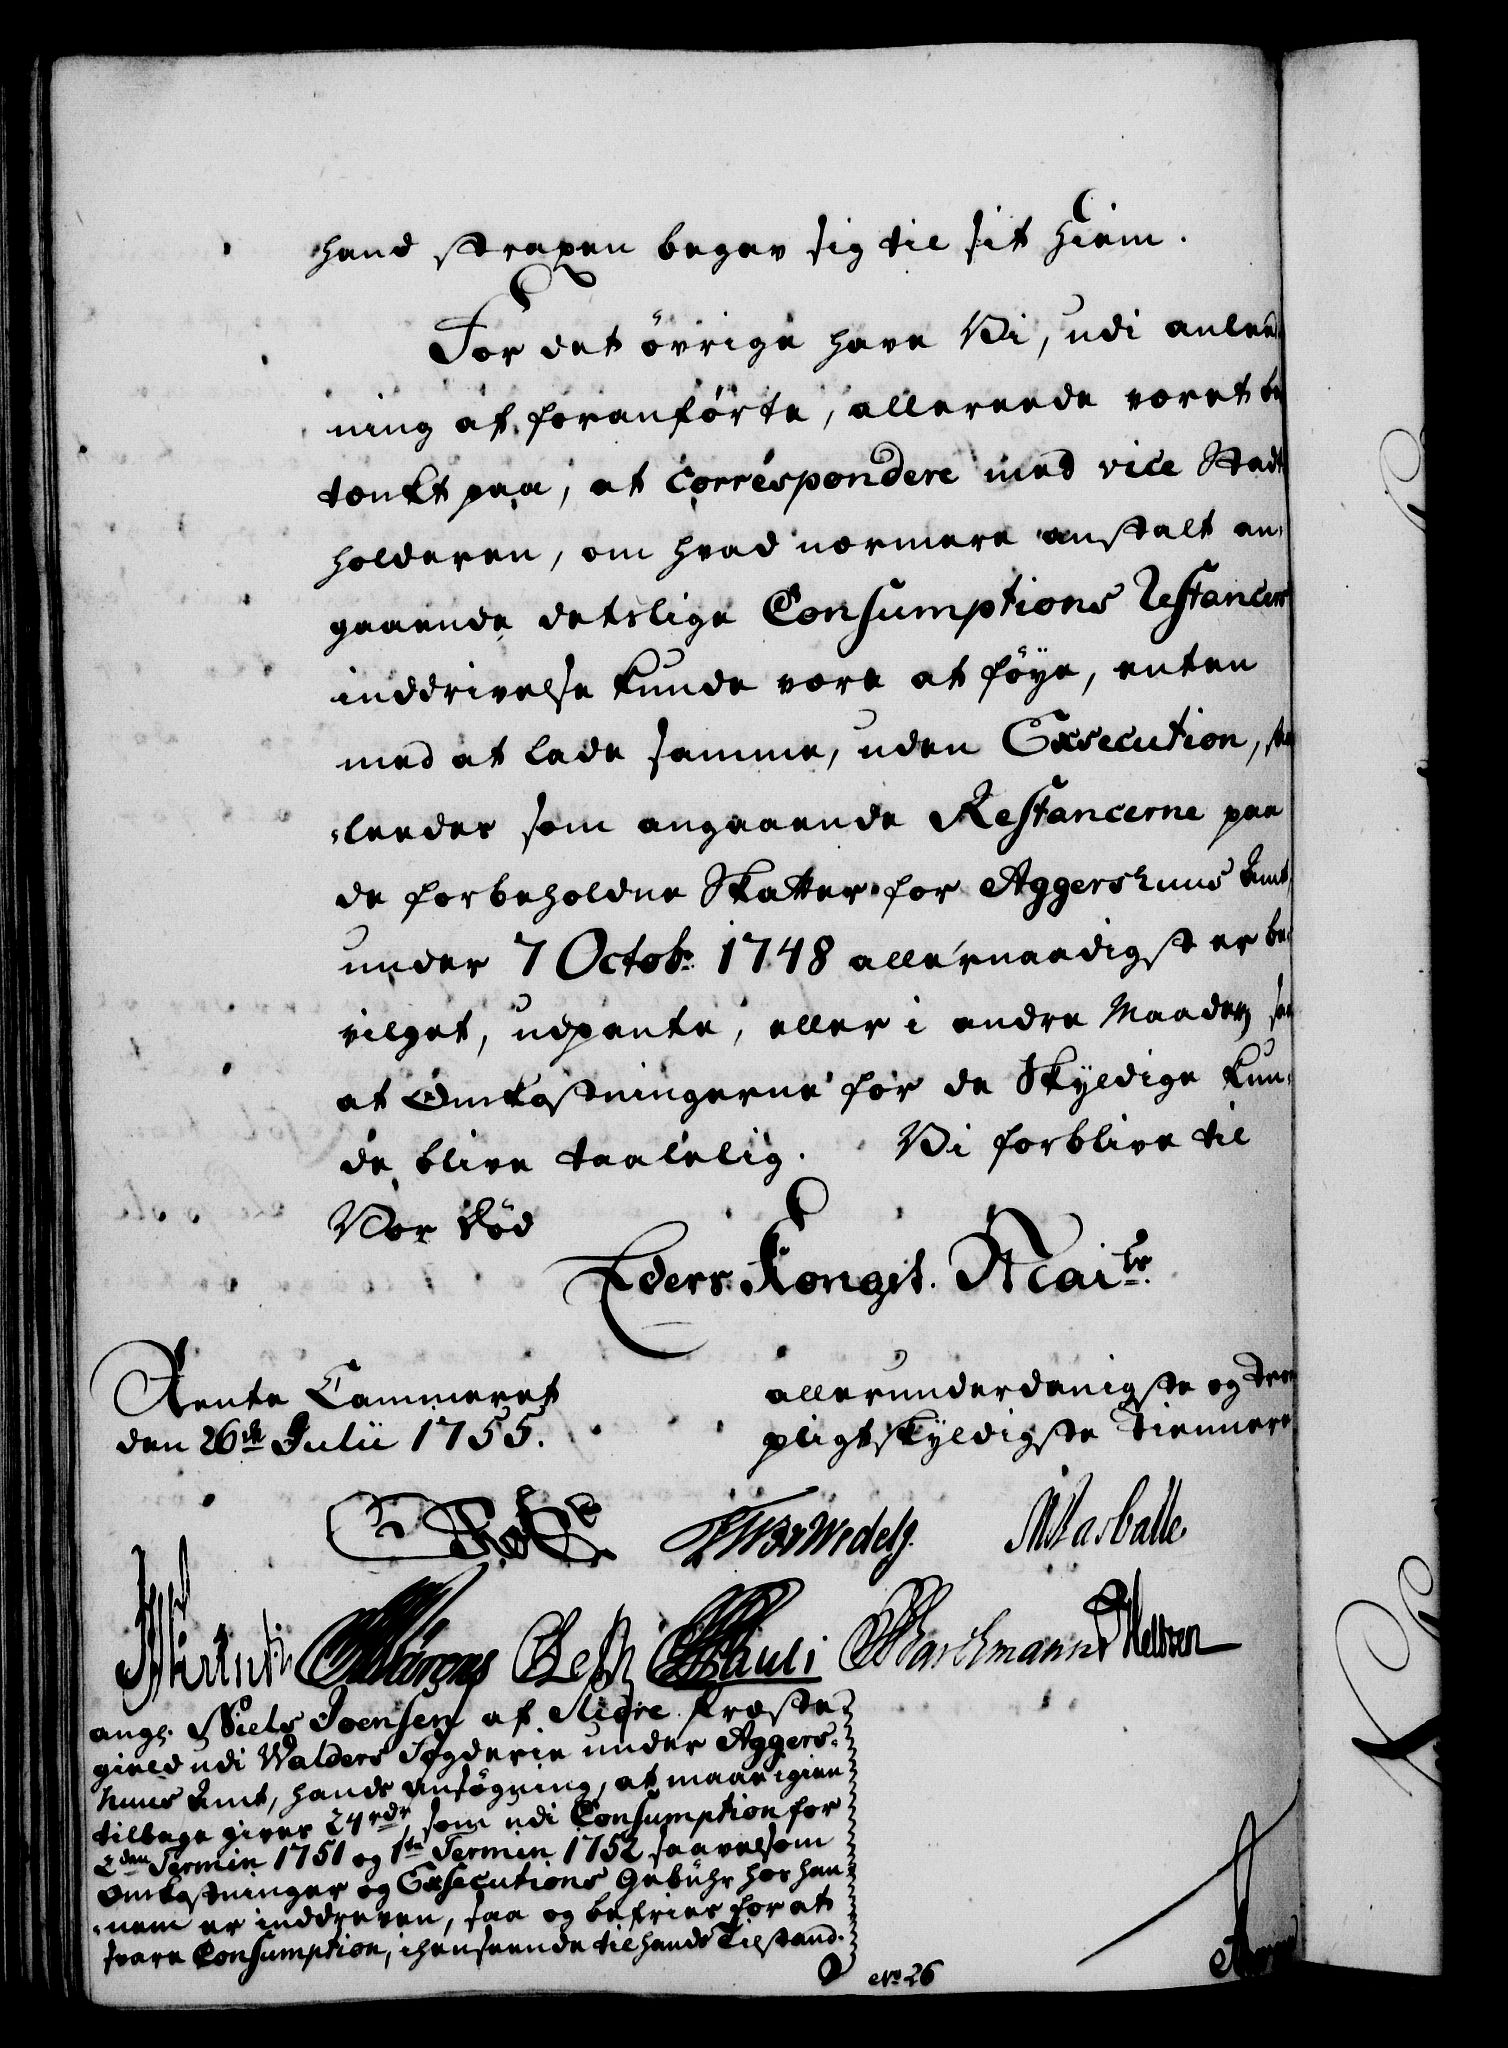 hand strapen begav sig til sit Hiem.
For det övrige have Vi, udi anled
ning af foranförte, allereede været be
tænkt paa, at correspondere med vice Stadt
holderen, om hvad nærmere anstalt an-
gaaende detslige Consumptions Restancers
inddrivelse kunde være at föye, enten
med at lade samme, uden Exsecution,
leedes som angaaende Restancerne paa
de forbeholdne Skatter for Aggershuus Amt,
under 7 Octobr. 1748 allernaadigst er be-
vilget, udpante, eller i andre Maader, saa
at Omkostningerne for de Skyldige kun-
de blive taalelig. Vi forblive til
Vor Död
Eders Kongel. Maits.
Rente Cammeret
den 26de Julii 1755.
allerunderdanigste og troe
pligtskyldigste Tiennere
Wedely.
Pauli Barchmann
ang: Niels Joensen af Slidre Præste-
gield udi Walders Fogderie under Aggers-
huus Amt, hands Ansögning, at maae igien
tilbage gives 24 rdr, som udi Consumption for
2den Termin 1751 og 1ste Termin 1752 saavelsom
Omkostninger og Exsecutions Gebühr hos han-
nem er inddreven, saa og befries for at
svare Consumption, i henseende til hands Tilstand.
No. 26